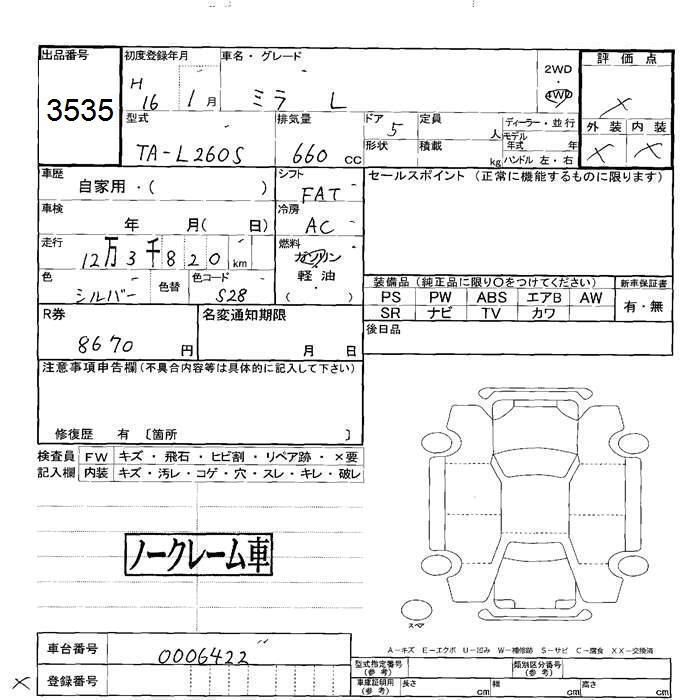 出品番号
3535
初度登録年月
H 16 1月
車名・グレード
ミラ L
2WD
・
4WD
評価点
×
外装 内装
× ×
型式
TA-L260S
排気量
660 CC
ドア
5
形状
定員
人
積載
kg
ディーラー・並行
モデル
年式 年
ハンドル 左・右
車歴
自家用・( )
シフト
FAT
セールスポイント (正常に機能するものに限ります)
車検
年 月( 日)
冷房
AC
走行
12万3千820km
燃料
ガソリン
・
軽油
・
( )
色
シルバー
色替
色コード
S28
装備品 (純正品に限り〇をつけてください)
新車保証書
PS PW ABS エアB AW
SR ナビ TV カワ
有・無
R券
8670 円
名変通知期限
月 日
後日品
注意事項申告欄 (不具合内容等は具体的に記入して下さい)
修復歴 有 〔箇所 〕
検査員
記入欄
FW キズ・飛石・ヒビ割・リペア跡・×要
内装 キズ・汚レ・コゲ・穴・スレ・キレ・破レ
ノークレーム車
スペア
車台番号
0006422
A-キズ E-エクボ U-凹み W-補修跡 S-サビ C-腐食 XX-交換済
× 登録番号
型式指定番号
(参考)
類別区分番号
(参考)
車庫証明用
(参考)
長さ cm
幅 cm
高さ cm